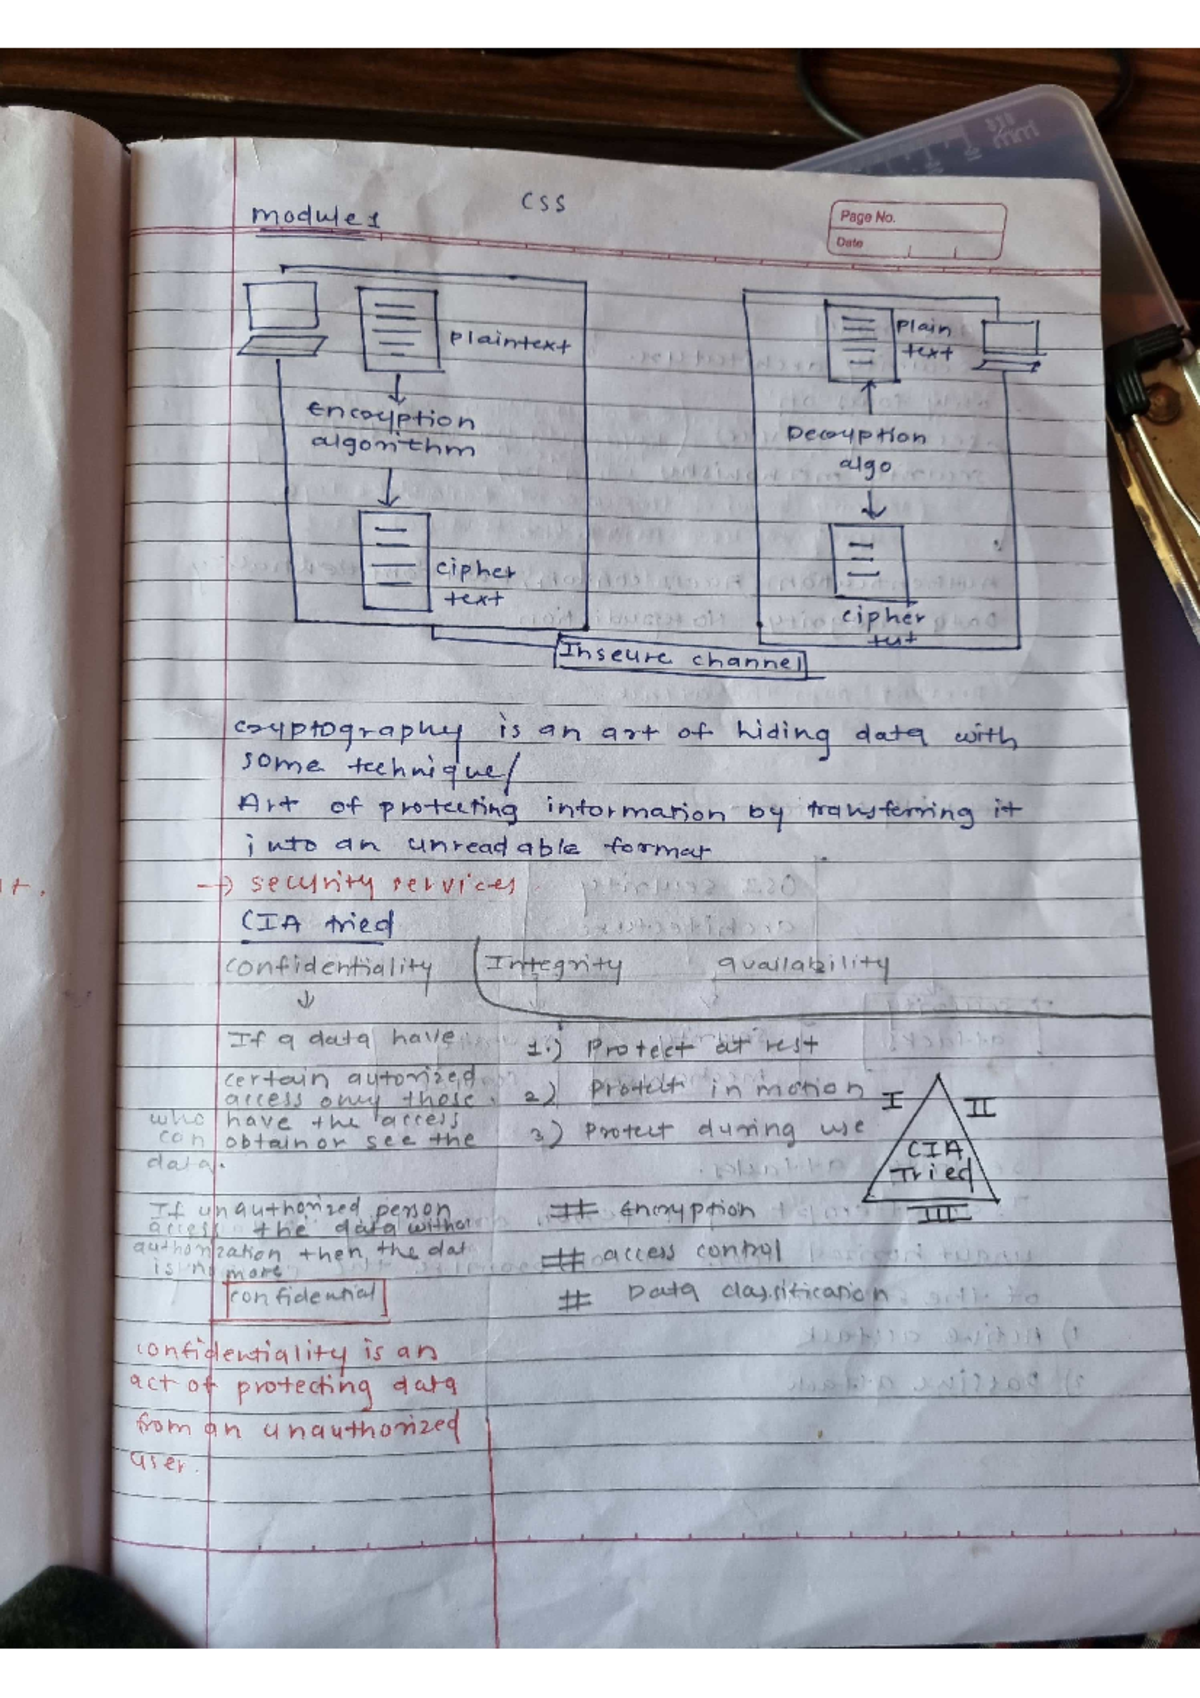 CSS
Module 1
Page No.
Date
Plaintext
Encryption
algorithm
cipher
text
Plain
text
Decryption
algo
cipher
tut
Inseure channel
Cryptography is an art of hiding data with
some technique/
Art of protecting information by transferring it
into an unreadable format
→ security services
CIA tried
confidentiality
Integrity
availability
↓
If a data have
certain autorized
access only those
who have the access
can obtain or see the
data.
If unauthorized person
access the data withou
authorization then the dat
is no more
confidential
confidentiality is an
act of protecting data
from an unauthorized
user.
1.) Protect at rest
2) Protect in motion
3) Protect during use
I
II
CIA
Tried
III
# Encryption
# access control
# Data classification